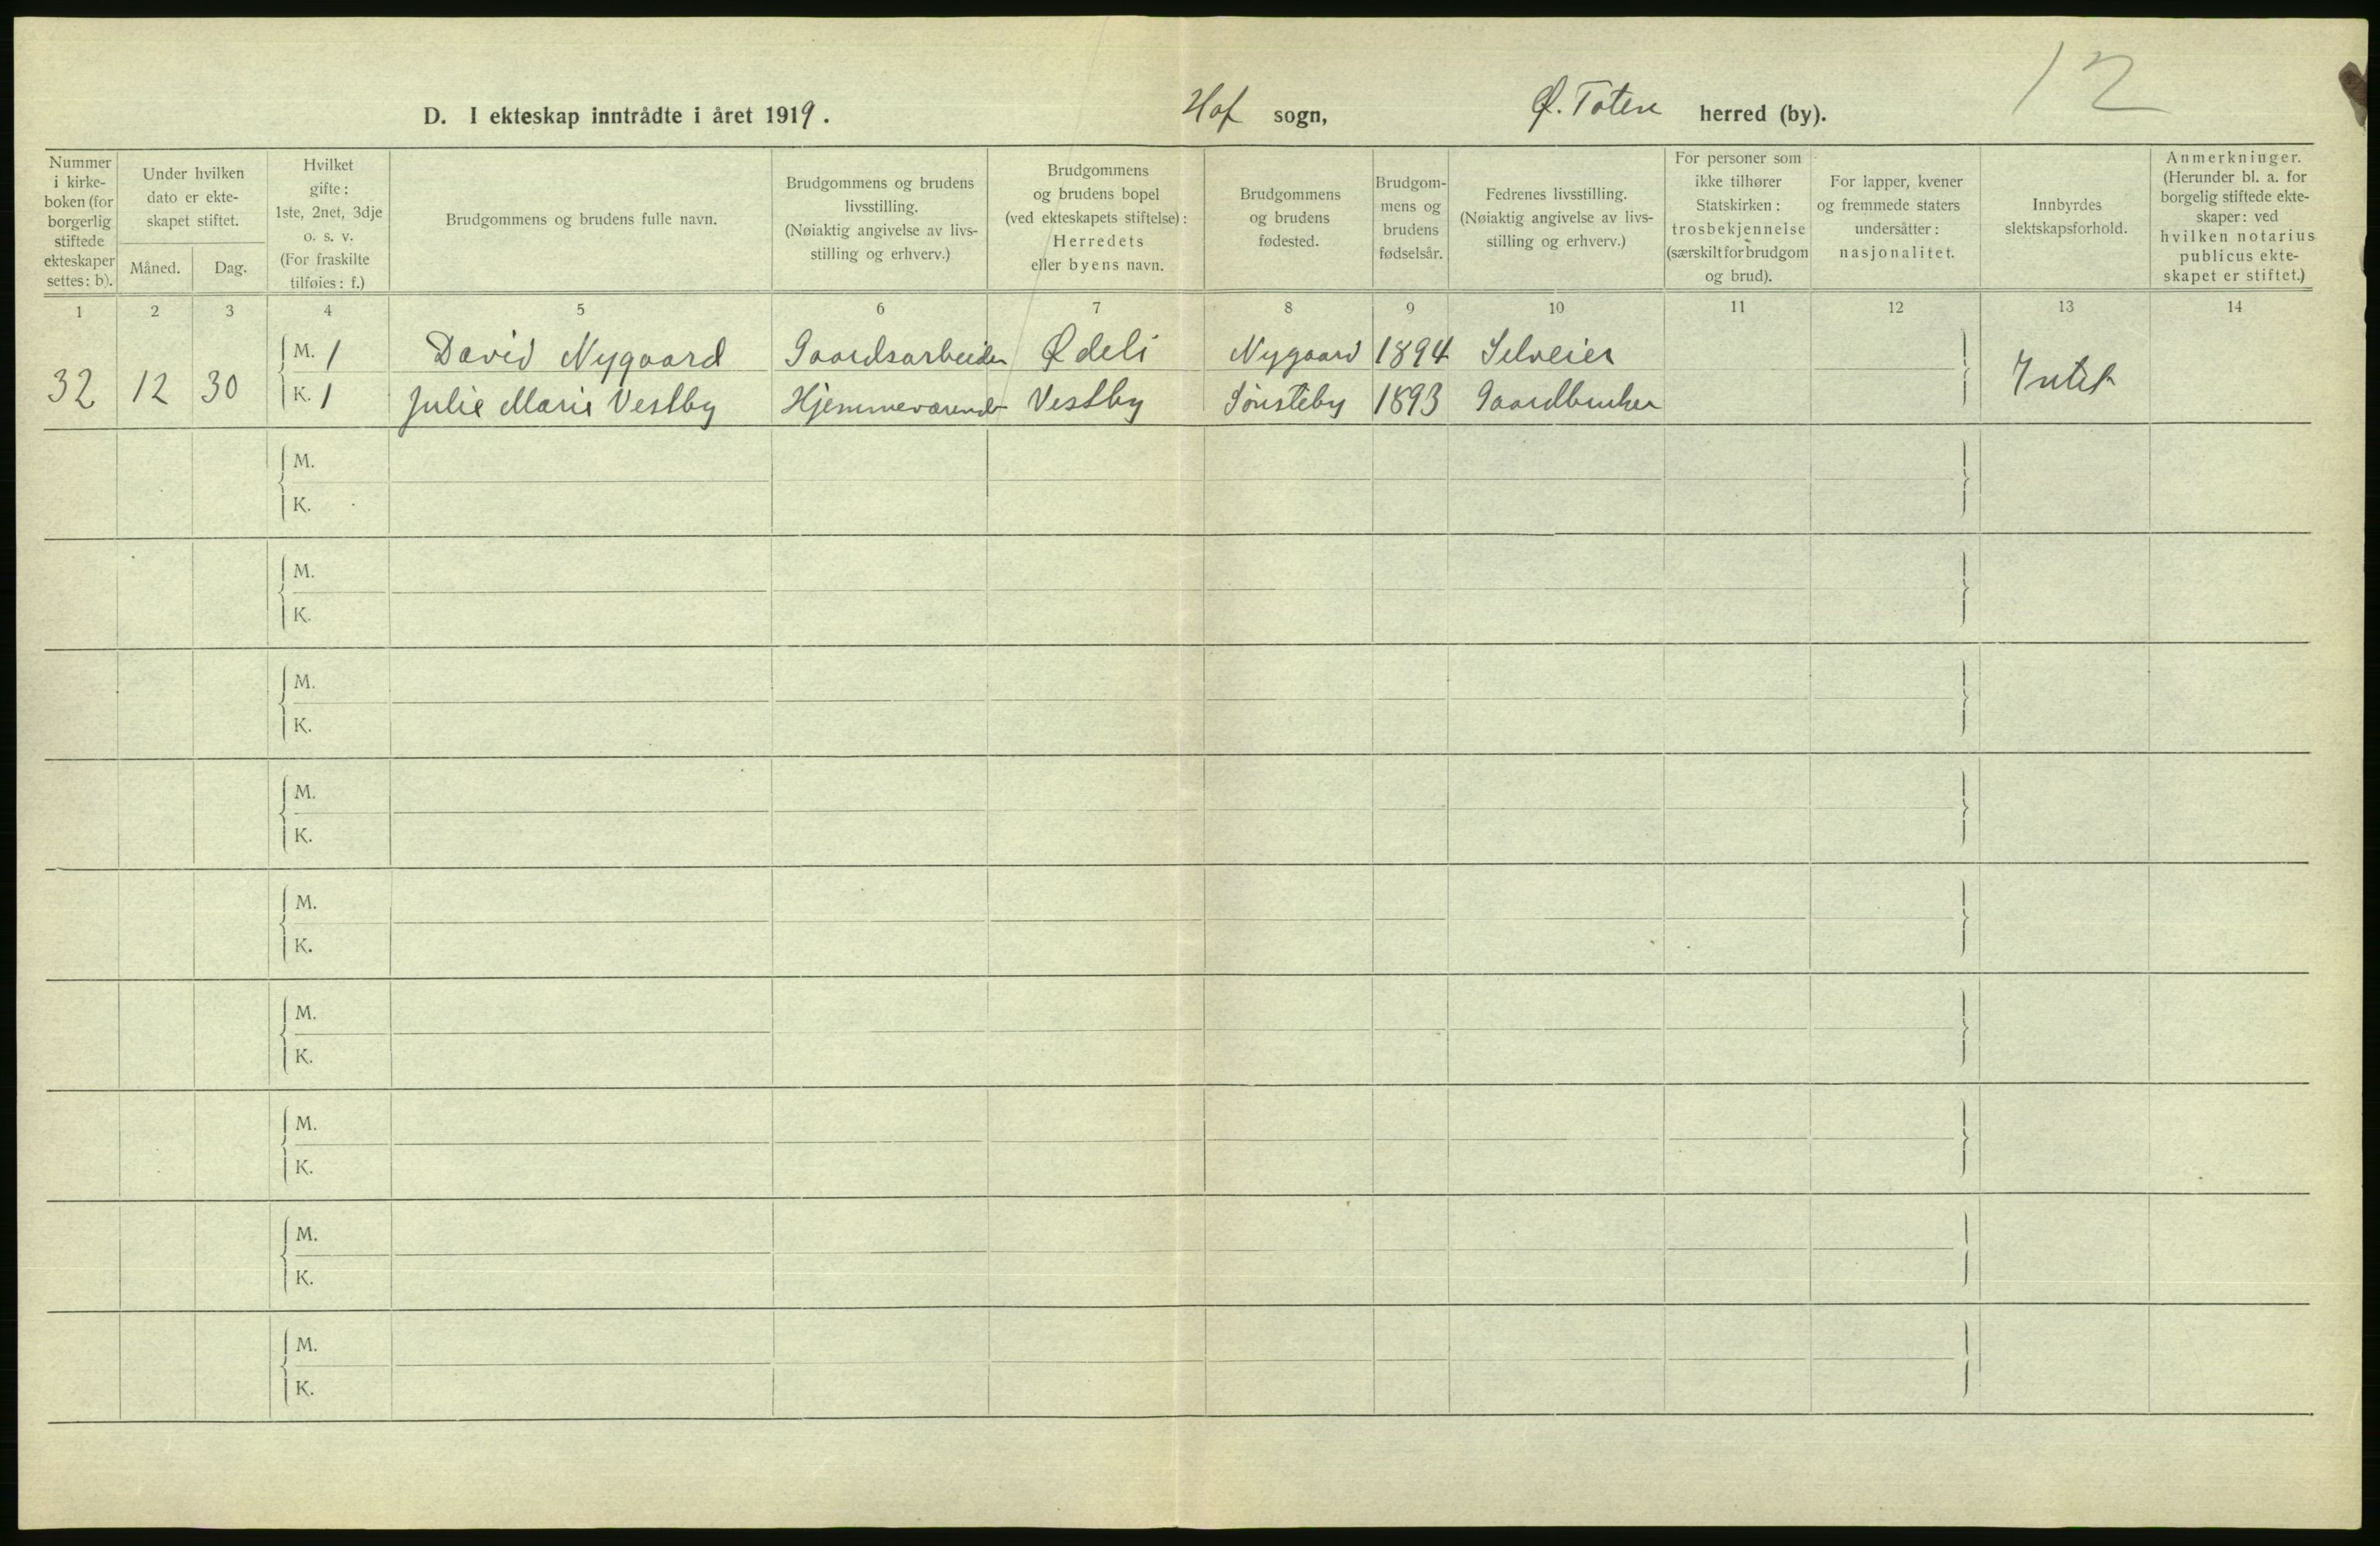 12
D. I ekteskap inntrådte i året 1919. Hof sogn, Ø. Toten herred (by).
Nummer i kirke- boken (for borgerlig stiftede ekteskaper settes: b).
Under hvilken dato er ekte- skapet stiftet.
Måned. Dag.
Hvilket gifte: 1ste, 2net, 3dje o. s. v. (For fraskilte tilføies: f.)
Brudgommens og brudens fulle navn.
Brudgommens og brudens livsstilling. (Nøiaktig angivelse av livs- stilling og erhverv.)
Brudgommens og brudens bopel (ved ekteskapets stiftelse): Herredets eller byens navn.
Brudgommens og brudens fødested.
Brudgom- mens og brudens fødselsår.
Fedrenes livsstilling. (Nøiaktig angivelse av livs- stilling og erhverv.)
For personer som ikke tilhører Statskirken: trosbekjennelse (særskilt for brudgom og brud).
For lapper, kvener og fremmede staters undersåtter: nasjonalitet.
Innbyrdes slektskapsforhold.
Anmerkninger. (Herunder bl. a. for borgelig stiftede ekte- skaper: ved hvilken notarius publicus ekte- skapet er stiftet.)
1 2 3 4 5 6 7 8 9 10 11 12 13 14
M. 1 David Nygaard Gaardsarbeider Ødeli Nygaard 1894 Selveier
32 12 30 Intet
K. 1 Julie Marie Vestby Hjemmeværende Vestby Sønsteby 1893 Gaardbruker
M.
K.
M.
K.
M.
K.
M.
K.
M.
K.
M.
K.
M.
K.
M.
K.
M.
K.